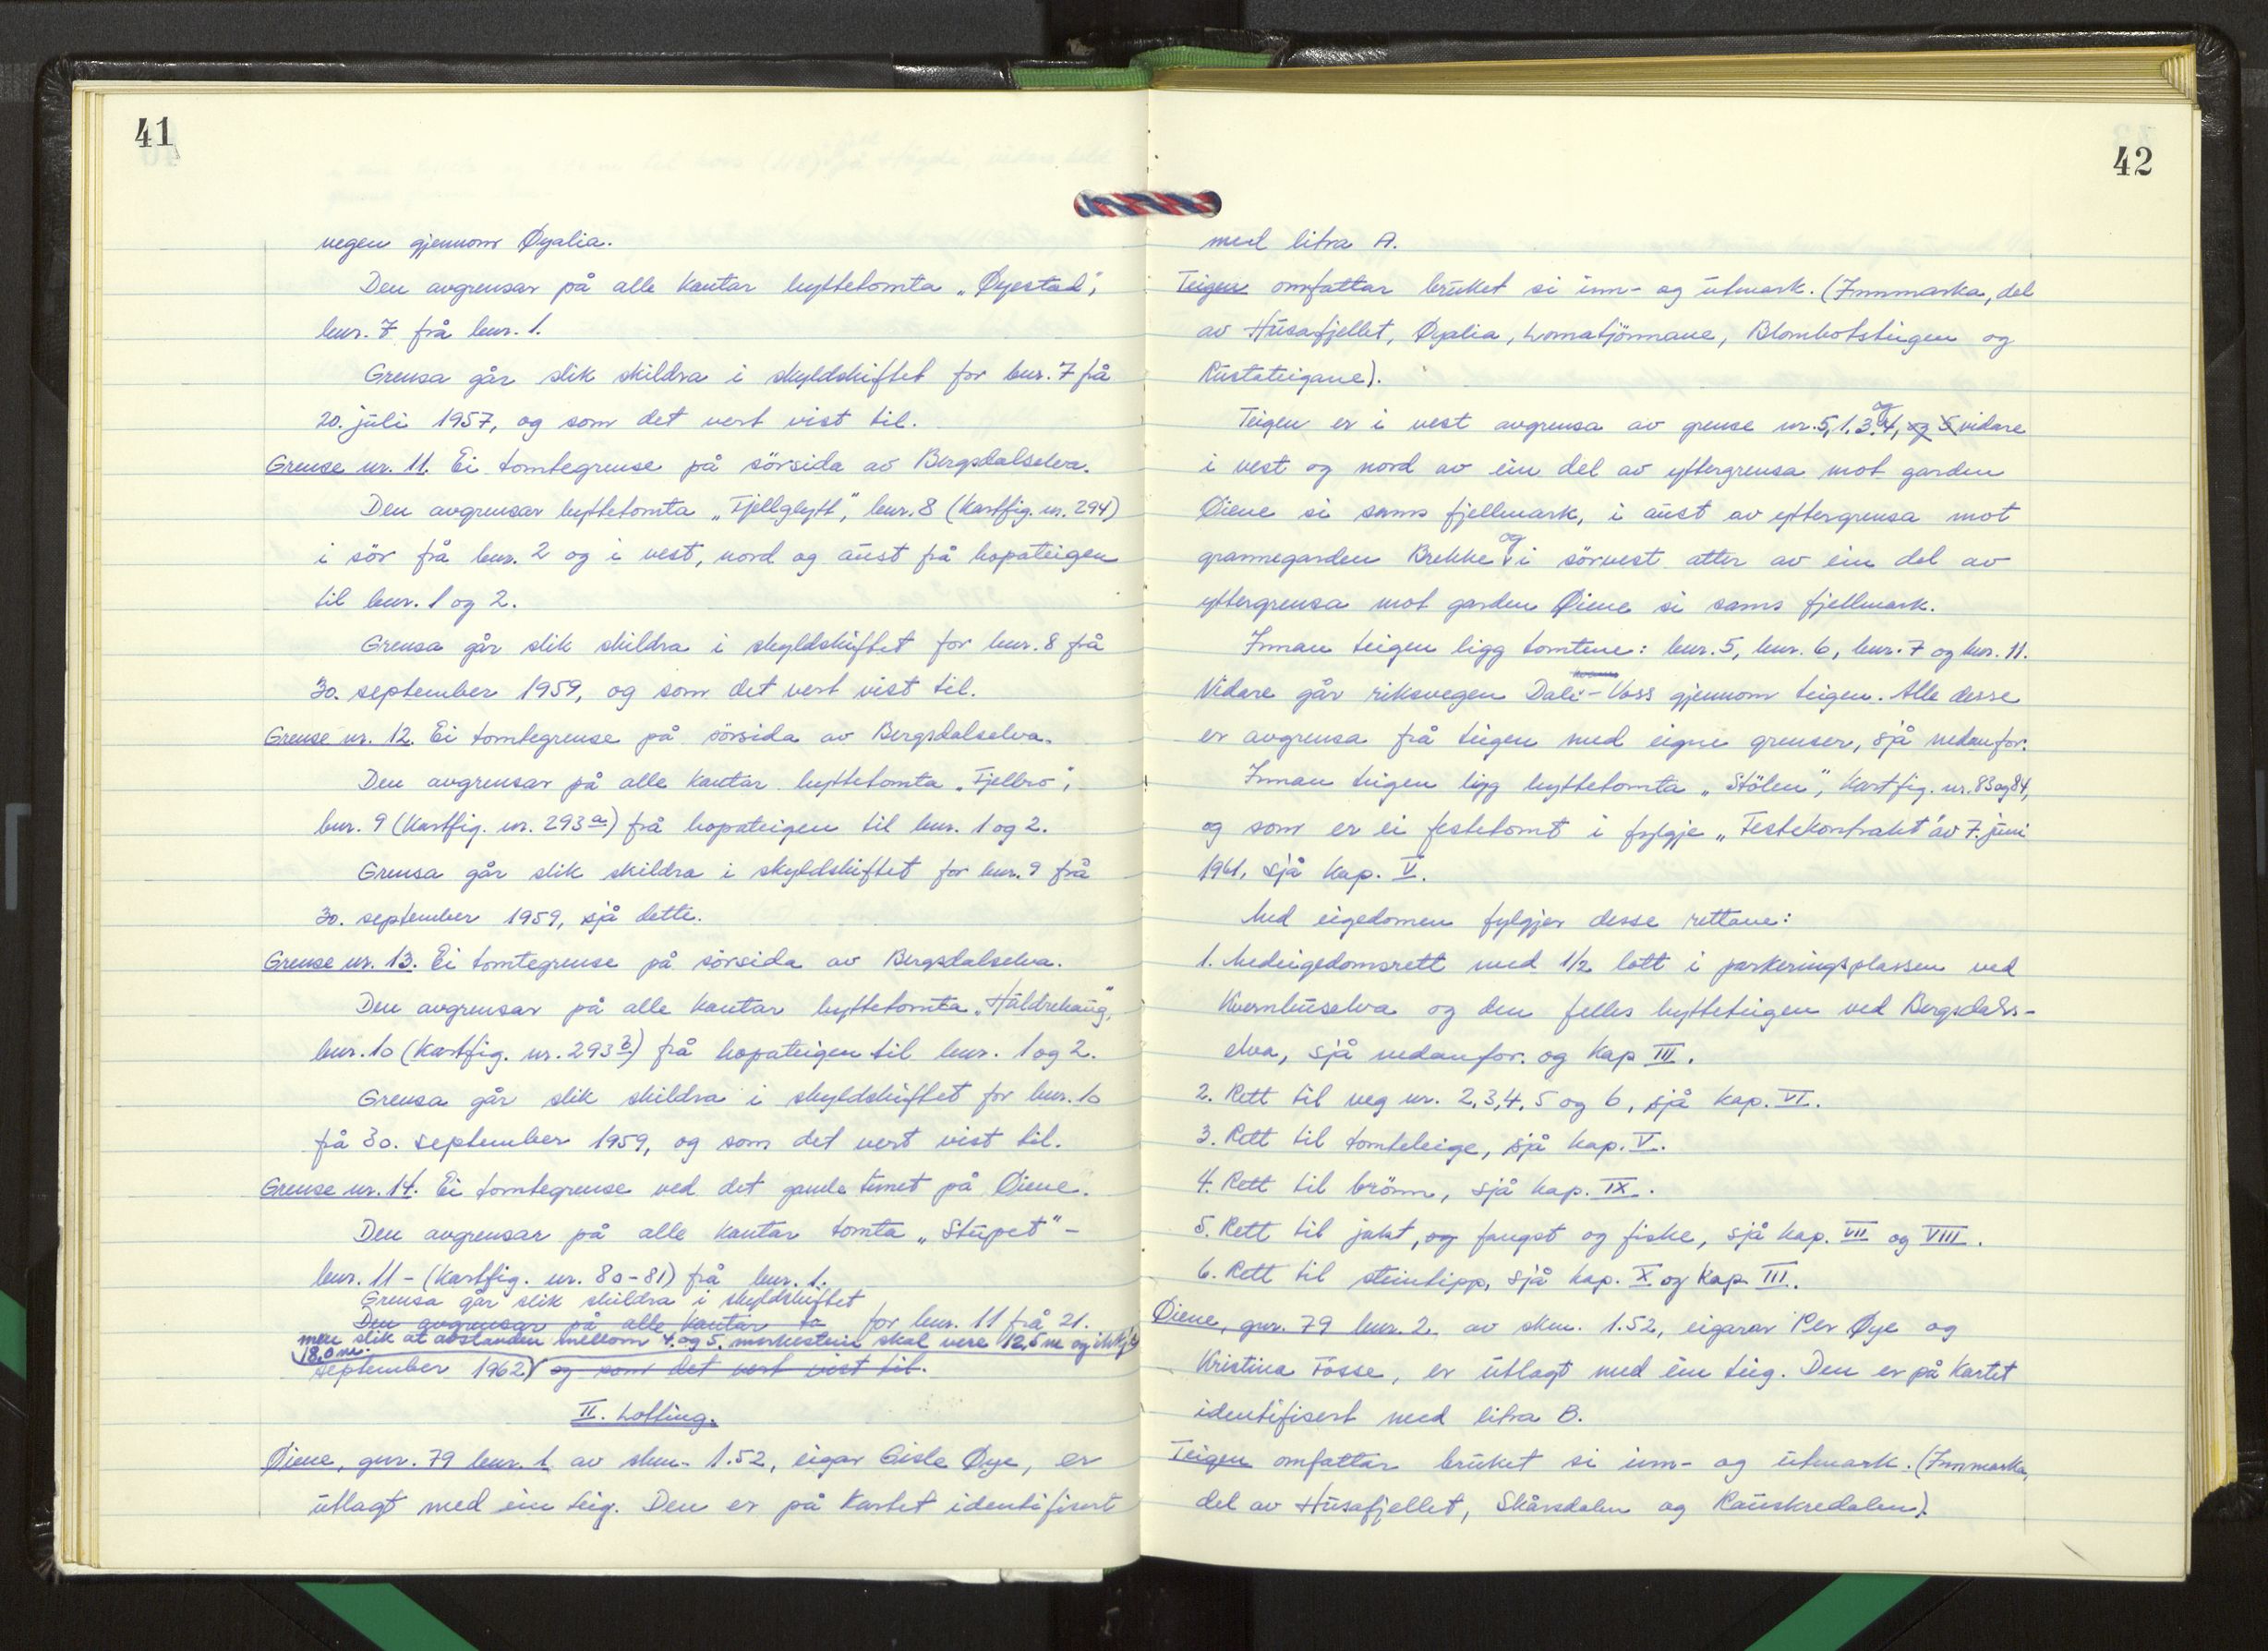 41
vegen gjennom Øyalia.
Den avgrensar på alle kantar hyttetomta „Øyestad",
bnr. 7 frå bnr. 1.
Grensa går slik skildra i skyldskiftet for bnr. 7 frå
20. juli 1957, og som det vert vist til.
Grense nr. 11. Ei tomtegrense på sörsida av Bergsdalselva.
Den avgrensar hyttetomta „Fjellglytt", bnr. 8 (Kartfig. nr. 294)
i sör frå bnr. 2 og i vest, nord og aust frå hopateigen
til bnr. 1 og 2.
Grensa går slik skildra i skyldskiftet for bnr. 8 frå
30. september 1959, og som det vert vist til.
Grense nr. 12. Ei tomtegrense på sörsida av Bergsdalselva.
Den avgrensar på alle kantar hyttetomta „Fjellro",
bnr. 9 (Kartfig. nr. 293 a) frå hopateigen til bnr. 1 og 2.
Grensa går slik skildra i skyldskiftet for bnr. 9 frå
30. september 1959, sjå dette.
Grense nr. 13. Ei tomtegrense på sörsida av Bergsdalselva.
Den avgrensar på alle kantar hyttetomta „Huldrehaug",
bnr. 10 (Kartfig. nr. 293 b) frå hopateigen til bnr. 1 og 2.
Grensa går slik skildra i skyldskiftet for bnr. 10
frå 30. september 1959, og som det vert vist til.
Grense nr. 14. Ei tomtegrense ved det gamle tunet på Øiene.
Den avgrensar på alle kantar tomta „Stupet" -
bnr. 11 - (Kartfig. nr. 80-81) frå bnr. 1.
Grensa går slik skildra i skyldskiftet
Den avgrensar på alle kantar to for bnr. 11 frå 21.
men slik at avstanden mellom 4. og 5. merkestein skal vere 12,5 m og ikkje
18,0 m.
september 1962, og som det vert vist til.
II. Lotting.
Øiene, gnr. 79 bnr. 1 av skm. 1.52, eigar Gisle Øye, er
utlagt med ein teig. Den er på Kartet identifisert
42
med litra A.
Teigen omfattar bruket si inn- og utmark. (Innmarka, del
av Husafjellet, Øyalia, Lomatjörnnane, Blombotsteigen og
Rustateigane).
og
Teigen er i vest avgrensa av grense nr. 5, 1, 3, 4, og 5 vidare
i vest og nord av ein del av yttergrensa mot garden
Øiene si sams fjellmark, i aust av yttergrensa mot
og
grannegarden Brekke i sörvest atter av ein del av
yttergrensa mot garden Øiene si sams fjellmark.
Innan teigen ligg tomtene: bnr. 5, bnr. 6, bnr. 7 og bnr. 11.
Vidare går riksvegen Dale - Voss gjennom teigen. Alle desse
er avgrensa frå teigen med eigne grenser, sjå nedanfor.
Innan teigen ligg hyttetomta „Stölen", Kartfig. nr. 83 og 84,
og som er ei festetomt i fylgje „Festekontrakt" av 7. juni
1961, sjå kap. V.
Med eigedomen fylgjer desse rettane:
1. Medeigedomsrett med 1/2 lott i parkeringsplassen ved
Kvernhuselva og den felles hytteteigen ved Bergsdals-
elva, sjå nedanfor og kap III.
2. Rett til veg nr. 2, 3, 4, 5 og 6, sjå kap. VI.
3. Rett til tomteleige, sjå kap. V.
4. Rett til brönn, sjå kap. IX.
5. Rett til jakt, og fangst og fiske, sjå kap. VII og VIII.
6. Rett til steintipp, sjå kap. X og kap. III.
Øiene, gnr. 79 bnr. 2 av skm. 1.52, eigarar Per Øye og
Kristina Fosse, er utlagt med ein teig. Den er på Kartet
identifisert med litra B.
Teigen omfattar bruket si inn- og utmark. (Innmarka,
del av Husafjellet, Skårsdalen og Rauskredalen).